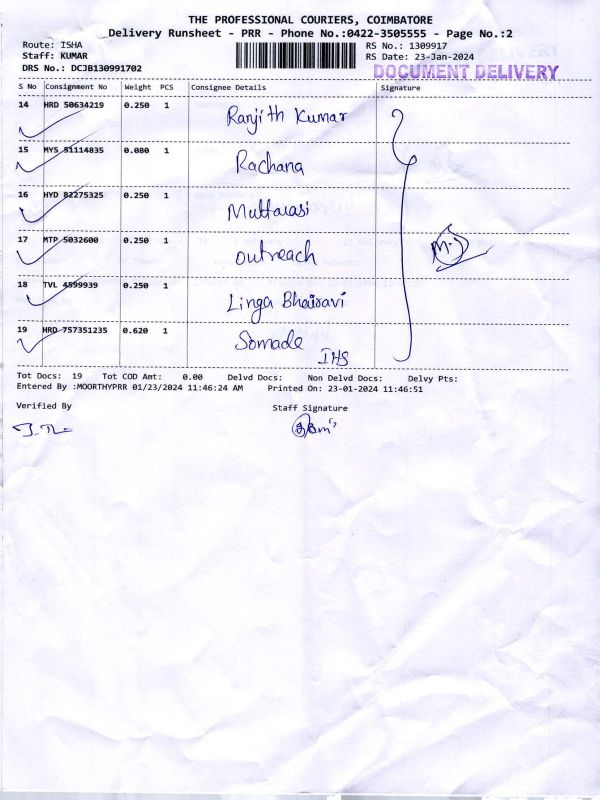 THE PROFESSIONAL COURIERS, COIMBATORE
Delivery Runsheet - PRR - Phone No.:0422-3505555 - Page No.:2
Route: ISHA RS No.: 1309917
Staff: KUMAR RS Date: 23-Jan-2024
DRS No.: DCJB130991702 DOCUMENT DELIVERY
S No Consignment No Weight PCS Consignee Details Signature
14 HRD 50634219 0.250 1 Ranjith Kumar
15 MYS 51114835 0.080 1 Rachana
16 HYD 82275325 0.250 1 Muttarasi
17 MTP 5032600 0.250 1 outreach
18 TVL 4599939 0.250 1 Linga Bhairavi
19 HRD 757351235 0.620 1 Somade
IHS
Tot Docs: 19 Tot COD Amt: 0.00 Delvd Docs: Non Delvd Docs: Delvy Pts:
Entered By :MOORTHYPRR 01/23/2024 11:46:24 AM Printed On: 23-01-2024 11:46:51
Verified By Staff Signature